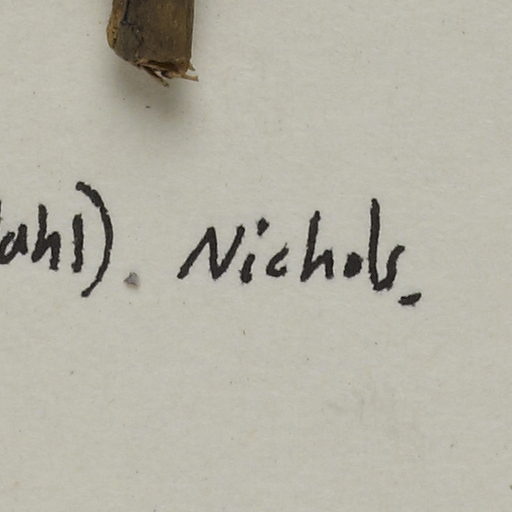 ahl). Nichols.